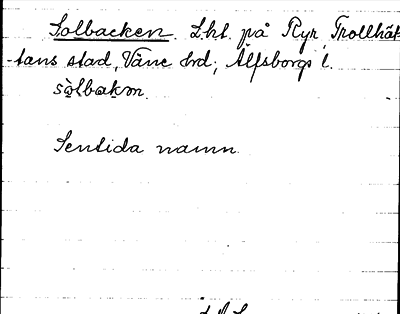 Solbacken. Lht. på Ryr, Trollhät
-tans stad, Väne hd; Älfsborgs l.
sòlbakɷn.
Sentida namn